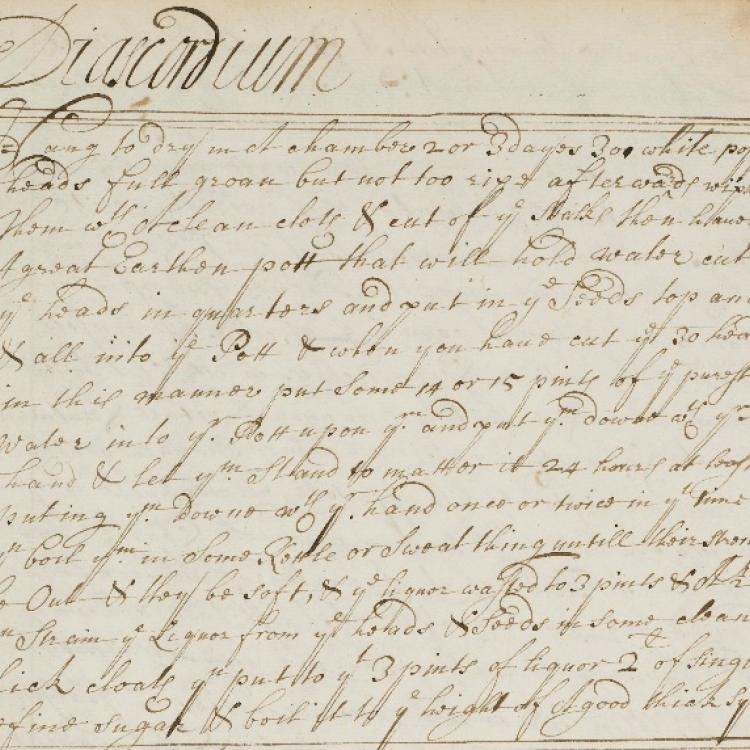 Diascordium
Hang to dry in A chamber 2 or 3 dayes 30 white po
heads full groan but not too ripe afterwards wip
them wth A clean cloth & cut of ye stalks then have
A great Earthen pott that will hold water cut
ye heads in quarters and put in ye Seeds top an
& all into ye Pott & when you have cut ye 30 hea
in this manner put some 14 or 15 pints of ye purest
water into yr Pott upon ym and put ym downe wth yr
hand & let ym Stand to matter it 24 hours at leas
puting ym Downe wth yr hand once or twice in yt time
yn boil ym in some Kettle or sweat thing untill their stren
be Out & they be soft, & ye liquor wasted to 3 pints &
yn Strain ye Liquor from ye heads & Seeds in some clean
lick cloath yn put to yt 3 pints of liquor 2 of sing
efine sugar & boil it to ye height of A good thick sy